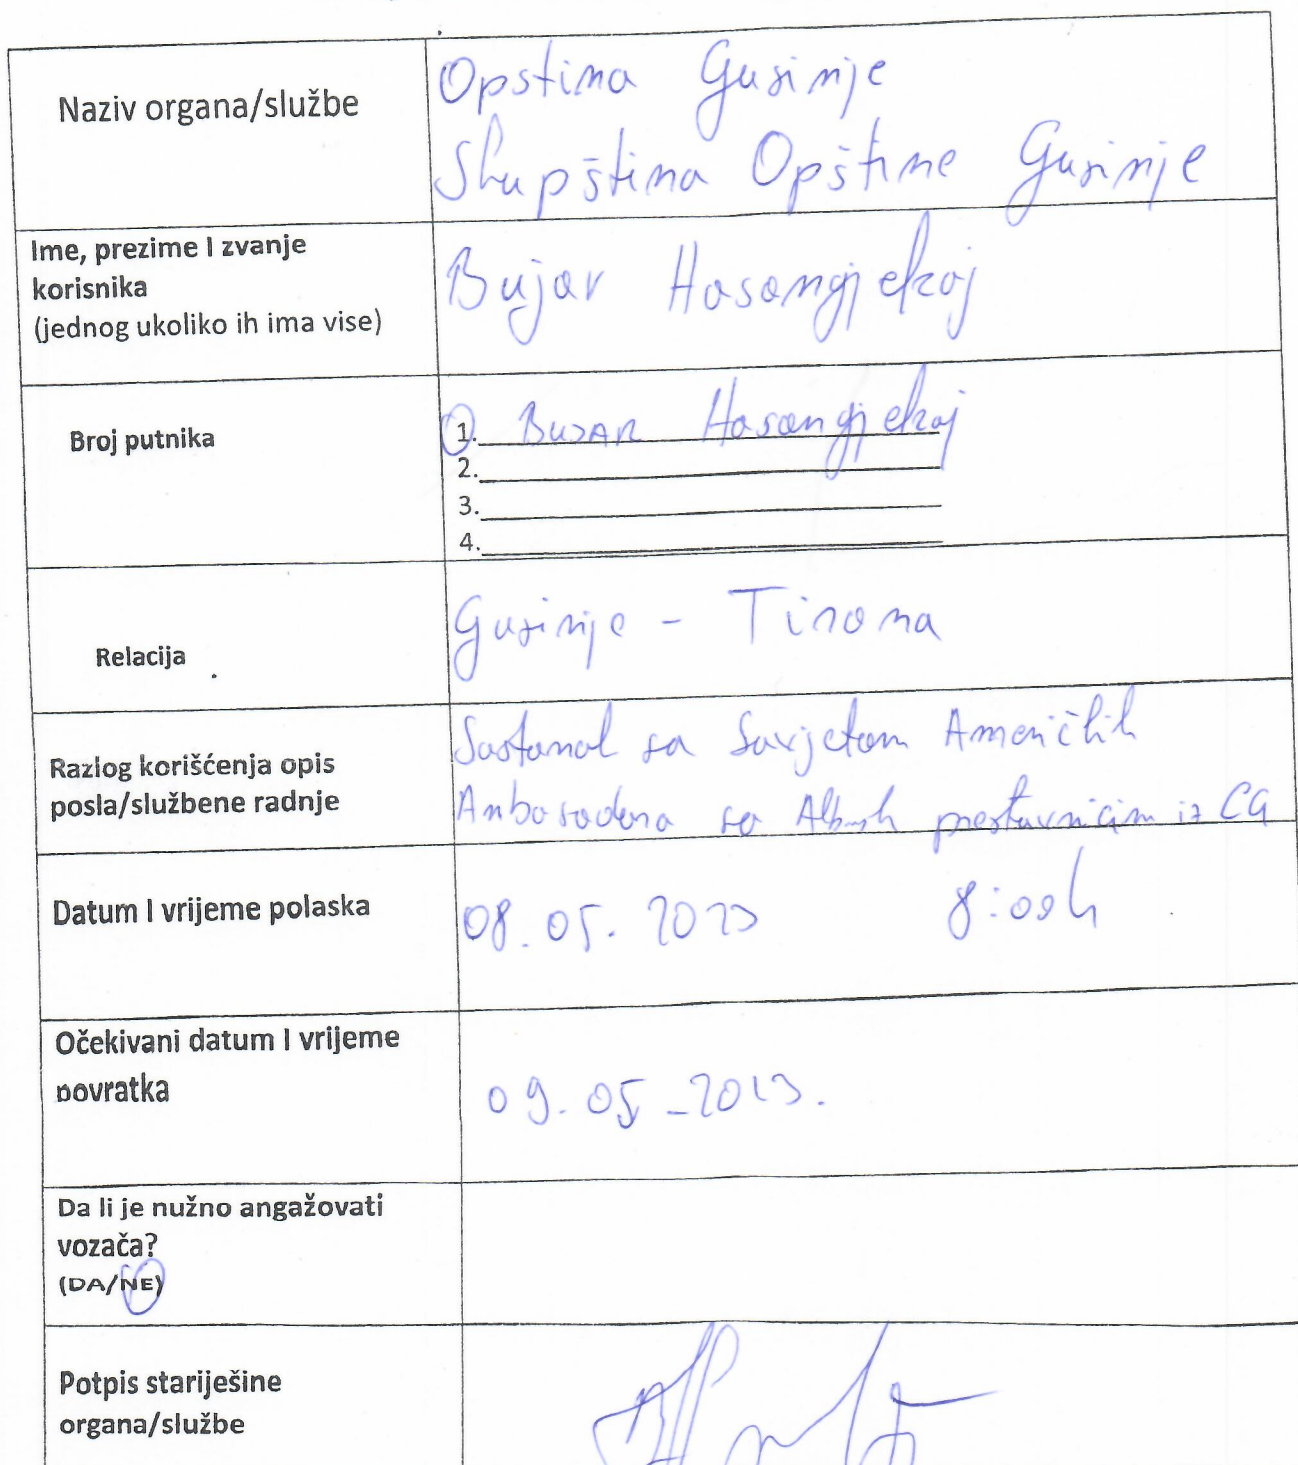 Naziv organa/službe
Opstina Gusinje
Skupština Opštine Gusinje
Ime, prezime I zvanje
korisnika
(jednog ukoliko ih ima vise)
Bujar Hasangjekaj
Broj putnika
1. BUJAR Hasangjekaj
2.
3.
4.
Relacija
Gusinje - Tirana
Razlog korišćenja opis
posla/službene radnje
Sastanak sa Savjetom Američkih
Anbasadora sa prestavnicim iz CG
Datum I vrijeme polaska
08.05.2023 8:00h
Očekivani datum I vrijeme
povratka
09.05-2023.
Da li je nužno angažovati
vozača?
(DA/NE)
Potpis starješine
organa/službe